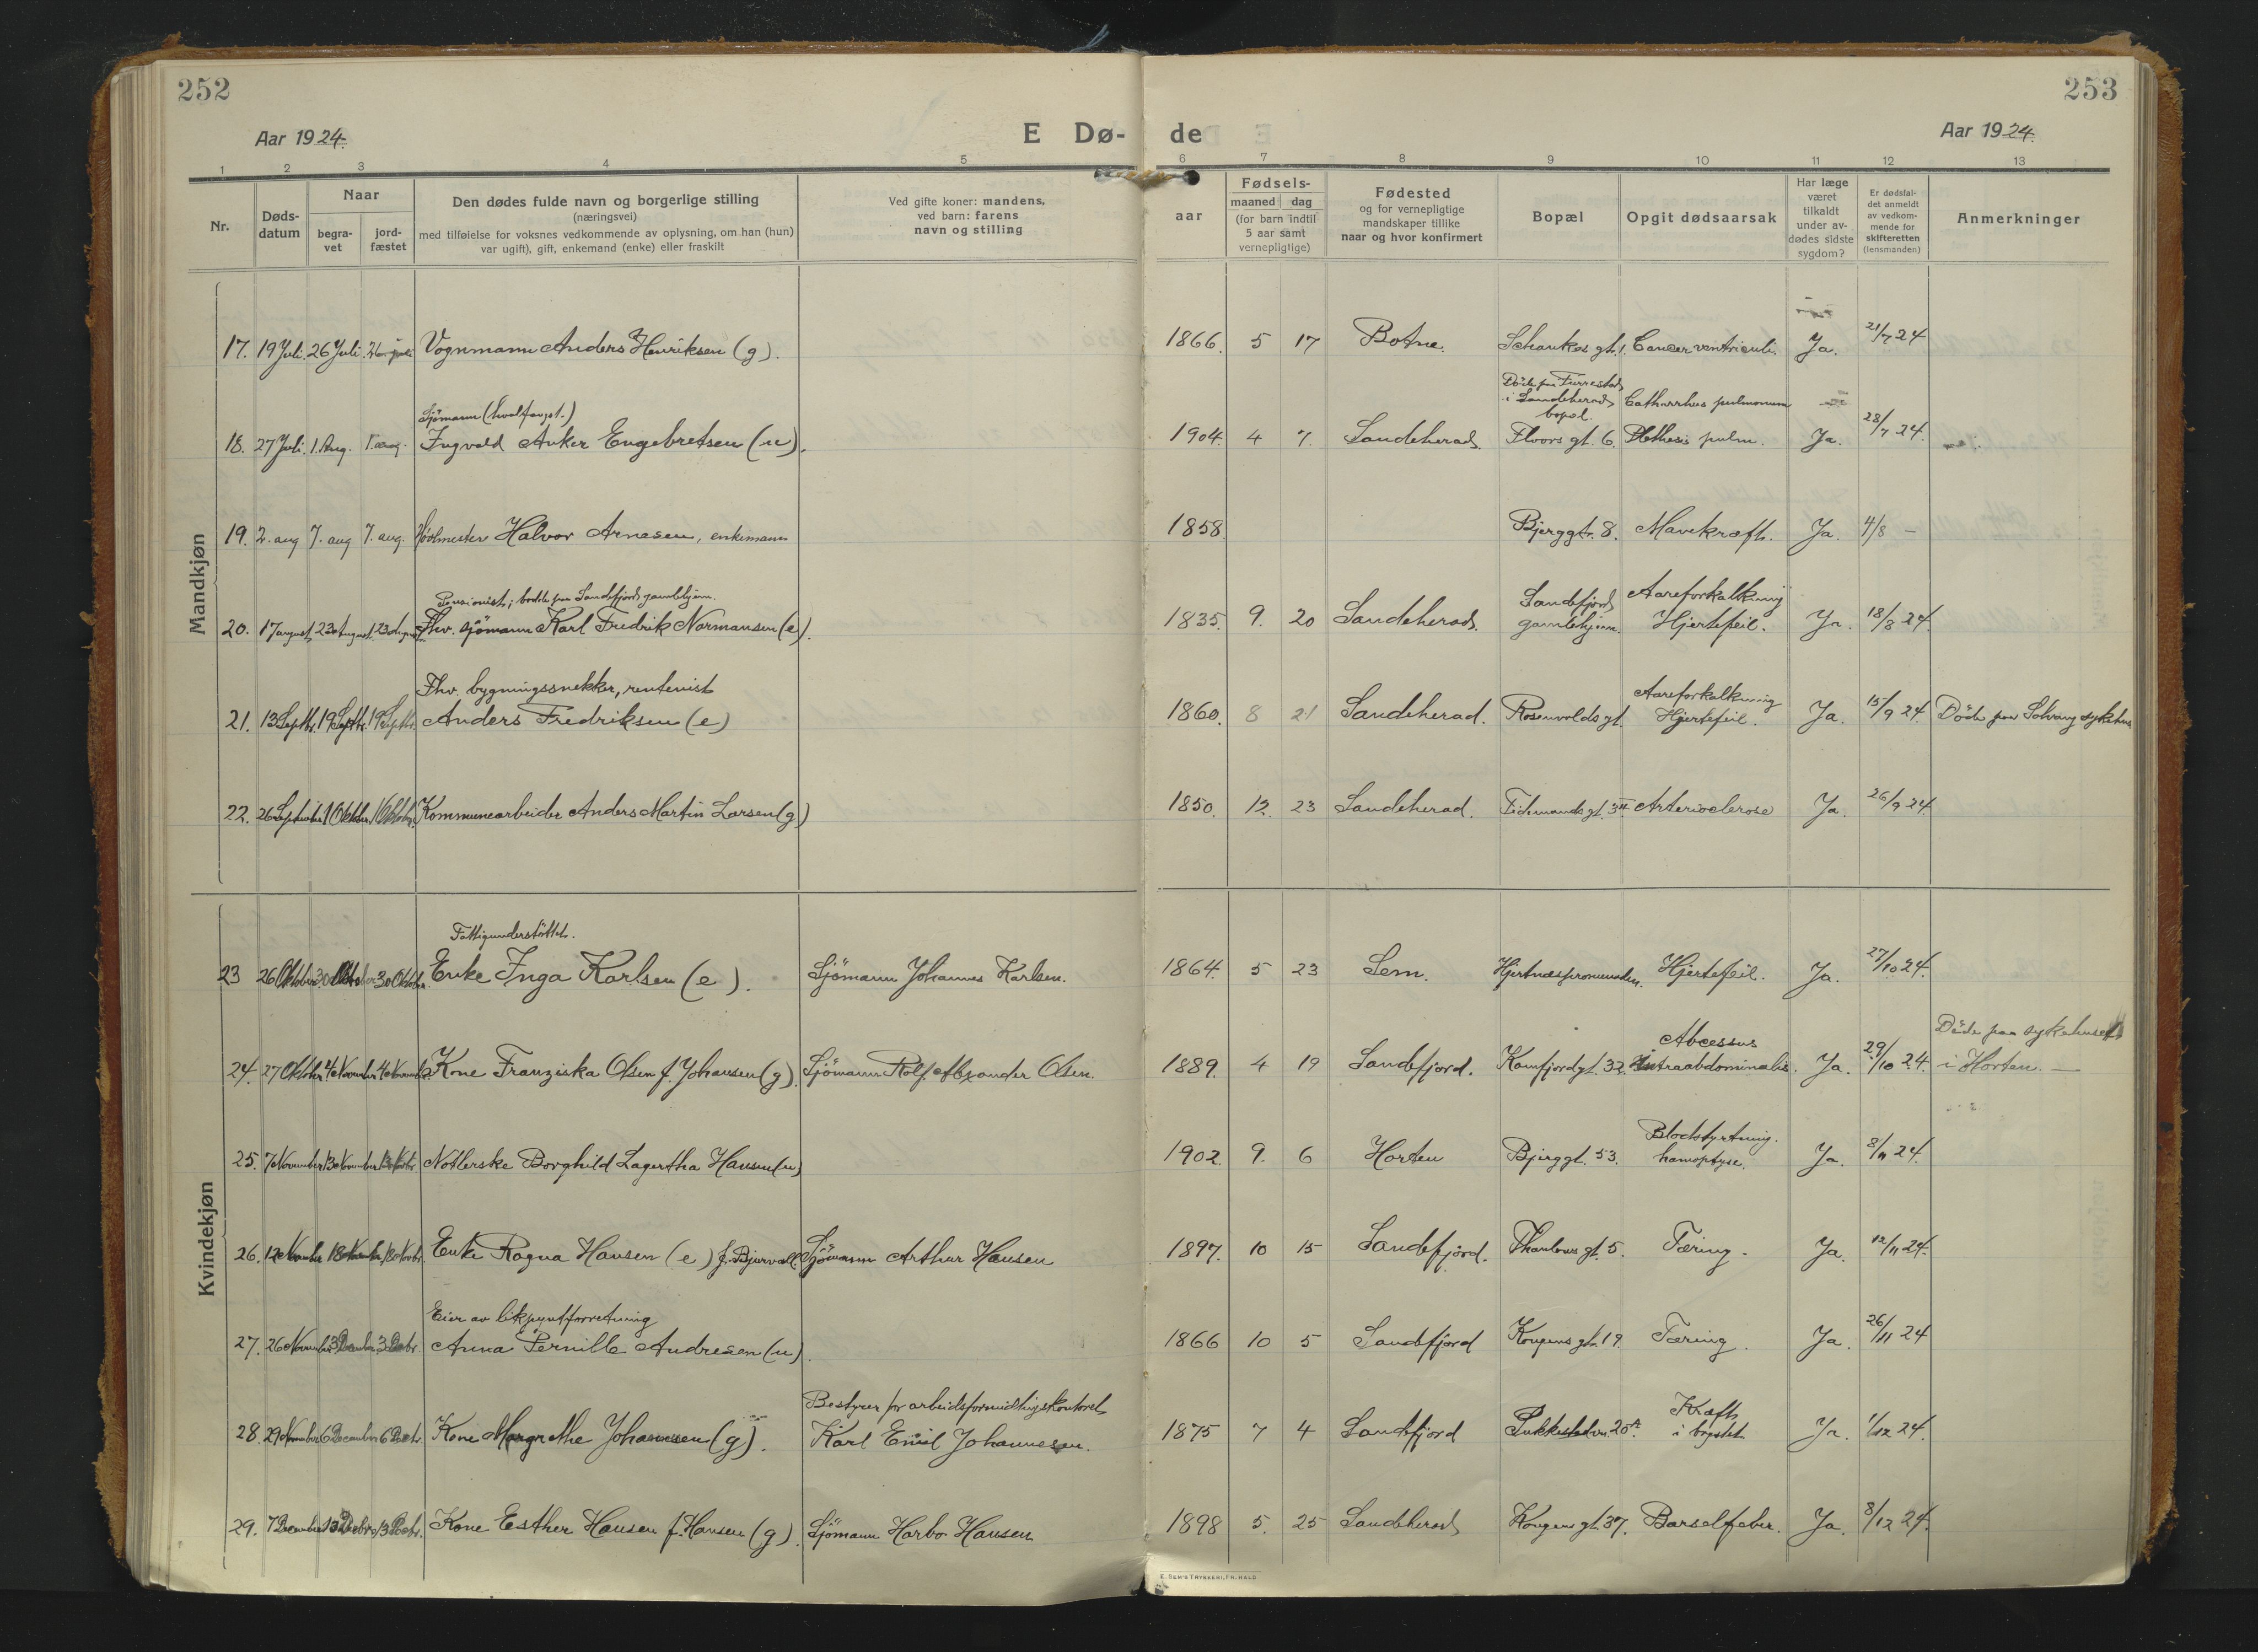 252
253
Aar 1924.
E Dø-
de
Aar 1924.
1 2 3 4 5 6 7 8 9 10 11 12 13
Nr.
Døds-
datum
Naar
begra-
vet
jord-
fæstet
Den dødes fulde navn og borgerlige stilling
(næringsvei)
med tilføielse for voksnes vedkommende av oplysning, om han (hun)
var ugift), gift, enkemand (enke) eller fraskilt
Ved gifte koner: mandens,
ved barn: farens
navn og stilling
aar
Fødsels-
maaned dag
(for barn indtil
5 aar samt
vernepligtige)
Fødested
og for vernepligtige
mandskaper tillike
naar og hvor konfirmert
Bopæl
Opgit dødsaarsak
Har læge
været
tilkaldt
under av-
dødes sidste
sygdom?
Er dødsfal-
det anmeldt
av vedkom-
mende for
skifteretten
(lensmanden)
Anmerkninger
Mandkjøn
17. 19 Juli. 26 Juli. 26 juli Vognmann Anders Henriksen (g). 1866. 5 17 Botne. gt. 1. Cancer ventriculi. Ja. 21/7 24
Sjömann (hvalfangst.) Döde paa Furrestad
i Sandeherad, Catharrhus pulmonum
bopel.
18. 27 Juli. 1. Aug. 1. aug. Ingvald Anker Engebretsen (u). 1904. 4 7. Sandeherad. Floors gt. 6. Phthesis pulm. Ja. 28/7 24.
19. 2. aug 7. aug 7. aug. Halvor Arnesen, enkemann 1858 Bjerggt. 8. Mavekræft. Ja. 4/8 –
Pensionist; bodde paa Sandefjord gamlehjem. Sandefjord Aareforkalkning
20. 17 august 23 August 23 August Fhv. sjömann Karl Fredrik Normansen (e). 1835. 9. 20 Sandeherad. gamlehjem. Hjertefeil. Ja. 18/8 24.
Fhv. bygningssnekker, rentenist Aareforkalkning
21. 13 Septbr. 19 Septbr. 19 Septbr. Anders Fredriksen (e) 1860. 8 21 Sandeherad. Rosenvolds gt. Hjertefeil. Ja. 15/9 24. Döde paa Solvang sykehus
22. 26 September 1 Oktober 1 Oktober. Kommunearbeider Anders Martin Larsen (g) 1850. 12. 23 Sandeherad. Tidemands gt. 3 Arterioclerose Ja. 26/9 24.
Kvindekjøn
Fattigunderstöttet.
23 26 Oktober 30 Oktober 30 Oktober. Enke Inga Karlsen (e). Sjömann Johannes Karlsen. 1864. 5 23 Sem. Hjertnespromenaden. Hjertefeil. Ja. 27/10 24.
Abcessus Döde paa sykehuset
24. 27 Oktober 4 November 4 November Kone Franziska Olsen f. Johansen (g). Sjömann Rolf Alexander Olsen. 1889. 4 19 Sandefjord. Kamfjordgt. 32. intraabdominalis. Ja. 29/10 24. i Horten. —
Blodstyrtning.
25. 7 November 13 November 13 Novbr. Borghild Lagertha Hansen (u) 1902. 9. 6 Horten Bjerggt. 53. hæmoptyse. Ja. 8/11 24.
26. 12 November 18 November 18 Novbr. Enke Ragna Hansen (e) f. Bjurvall. Sjömann Arthur Hansen 1897. 10 15 Sandefjord. Thaulows gt. 5. Tæring. Ja. 12/11 24.
Eier av likpyntforretning
27. 26 November 3 December 3 Decbr. Anna Pernille Andresen (u). 1866 10 5 Sandefjord Kongens gt. 19. Tæring. Ja. 26/11 24
Bestyrer for arbeidsformidlingskontoret Kræft
28. 29 November 6 December 6 Decbr. Kone Margrethe Johannessen (g). Karl Emil Johannesen. 1875 7 4 Sandefjord Pukkestadvn. 20 A. i brystet Ja. 1/12 24.
29. 7 December 13 Decbr. 13 Decbr. Kone Esther Hansen f. Hansen (g). Sjömann Harbo Hansen 1898 5. 25 Sandeherad Kongens gt. 37. Barselfeber. Ja. 8/12 24.
E. SEM'S TRYKKERI, FR.HALD